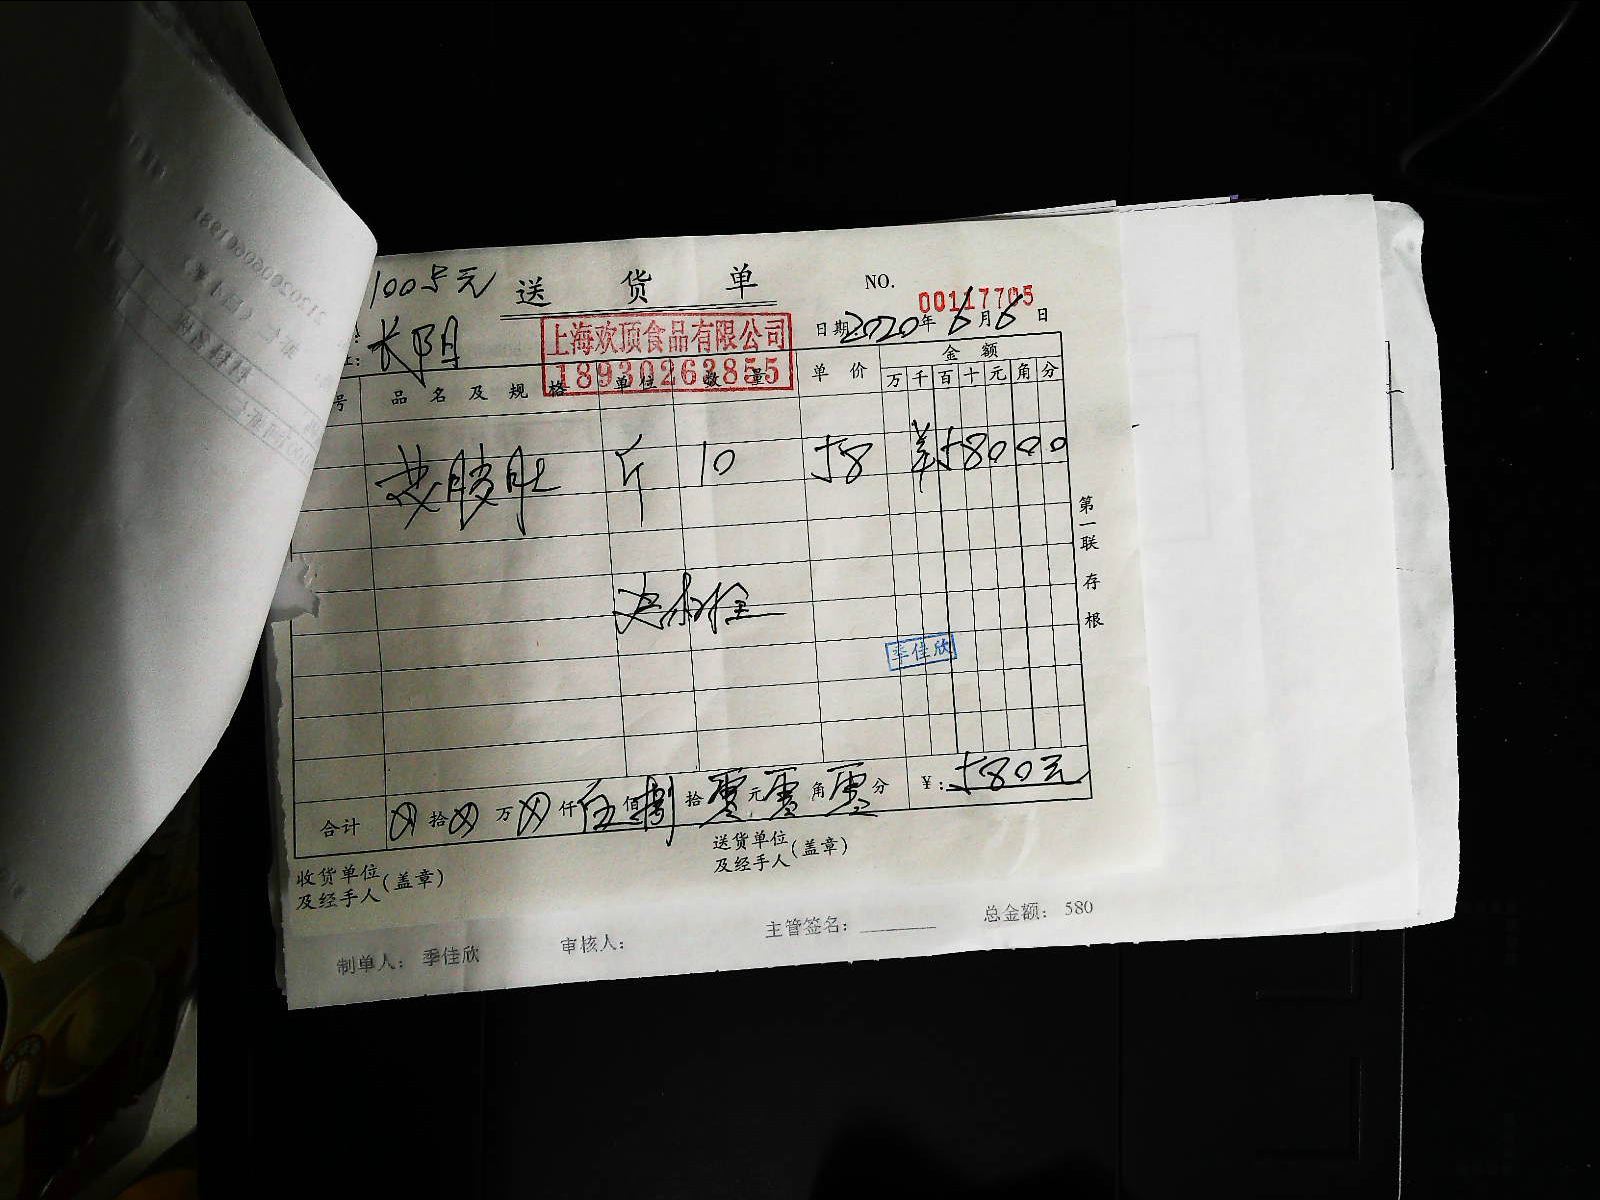 送 货 单
NO.
00117705
长阳
日期 2020年6月6日
上海欢顶食品有限公司
18930263855
号 品名及规格 单位 数量 单价 金额
万 千 百 十 元 角 分
斤 10 58 58000
季佳欣
合计 ⊗拾⊗万⊗仟伍佰捌拾零元零角零分 ¥: 580元
第一联 存根
收货单位及经手人(盖章)
送货单位及经手人(盖章)
制单人: 季佳欣 审核人: 主管签名: 总金额: 580